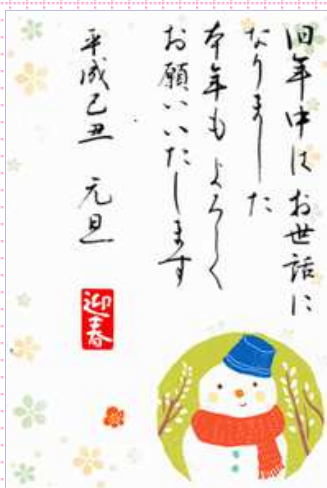 旧年中はお世話に
なりました
本年もよろしく
お願いいたします
平成己丑 元旦
迎春